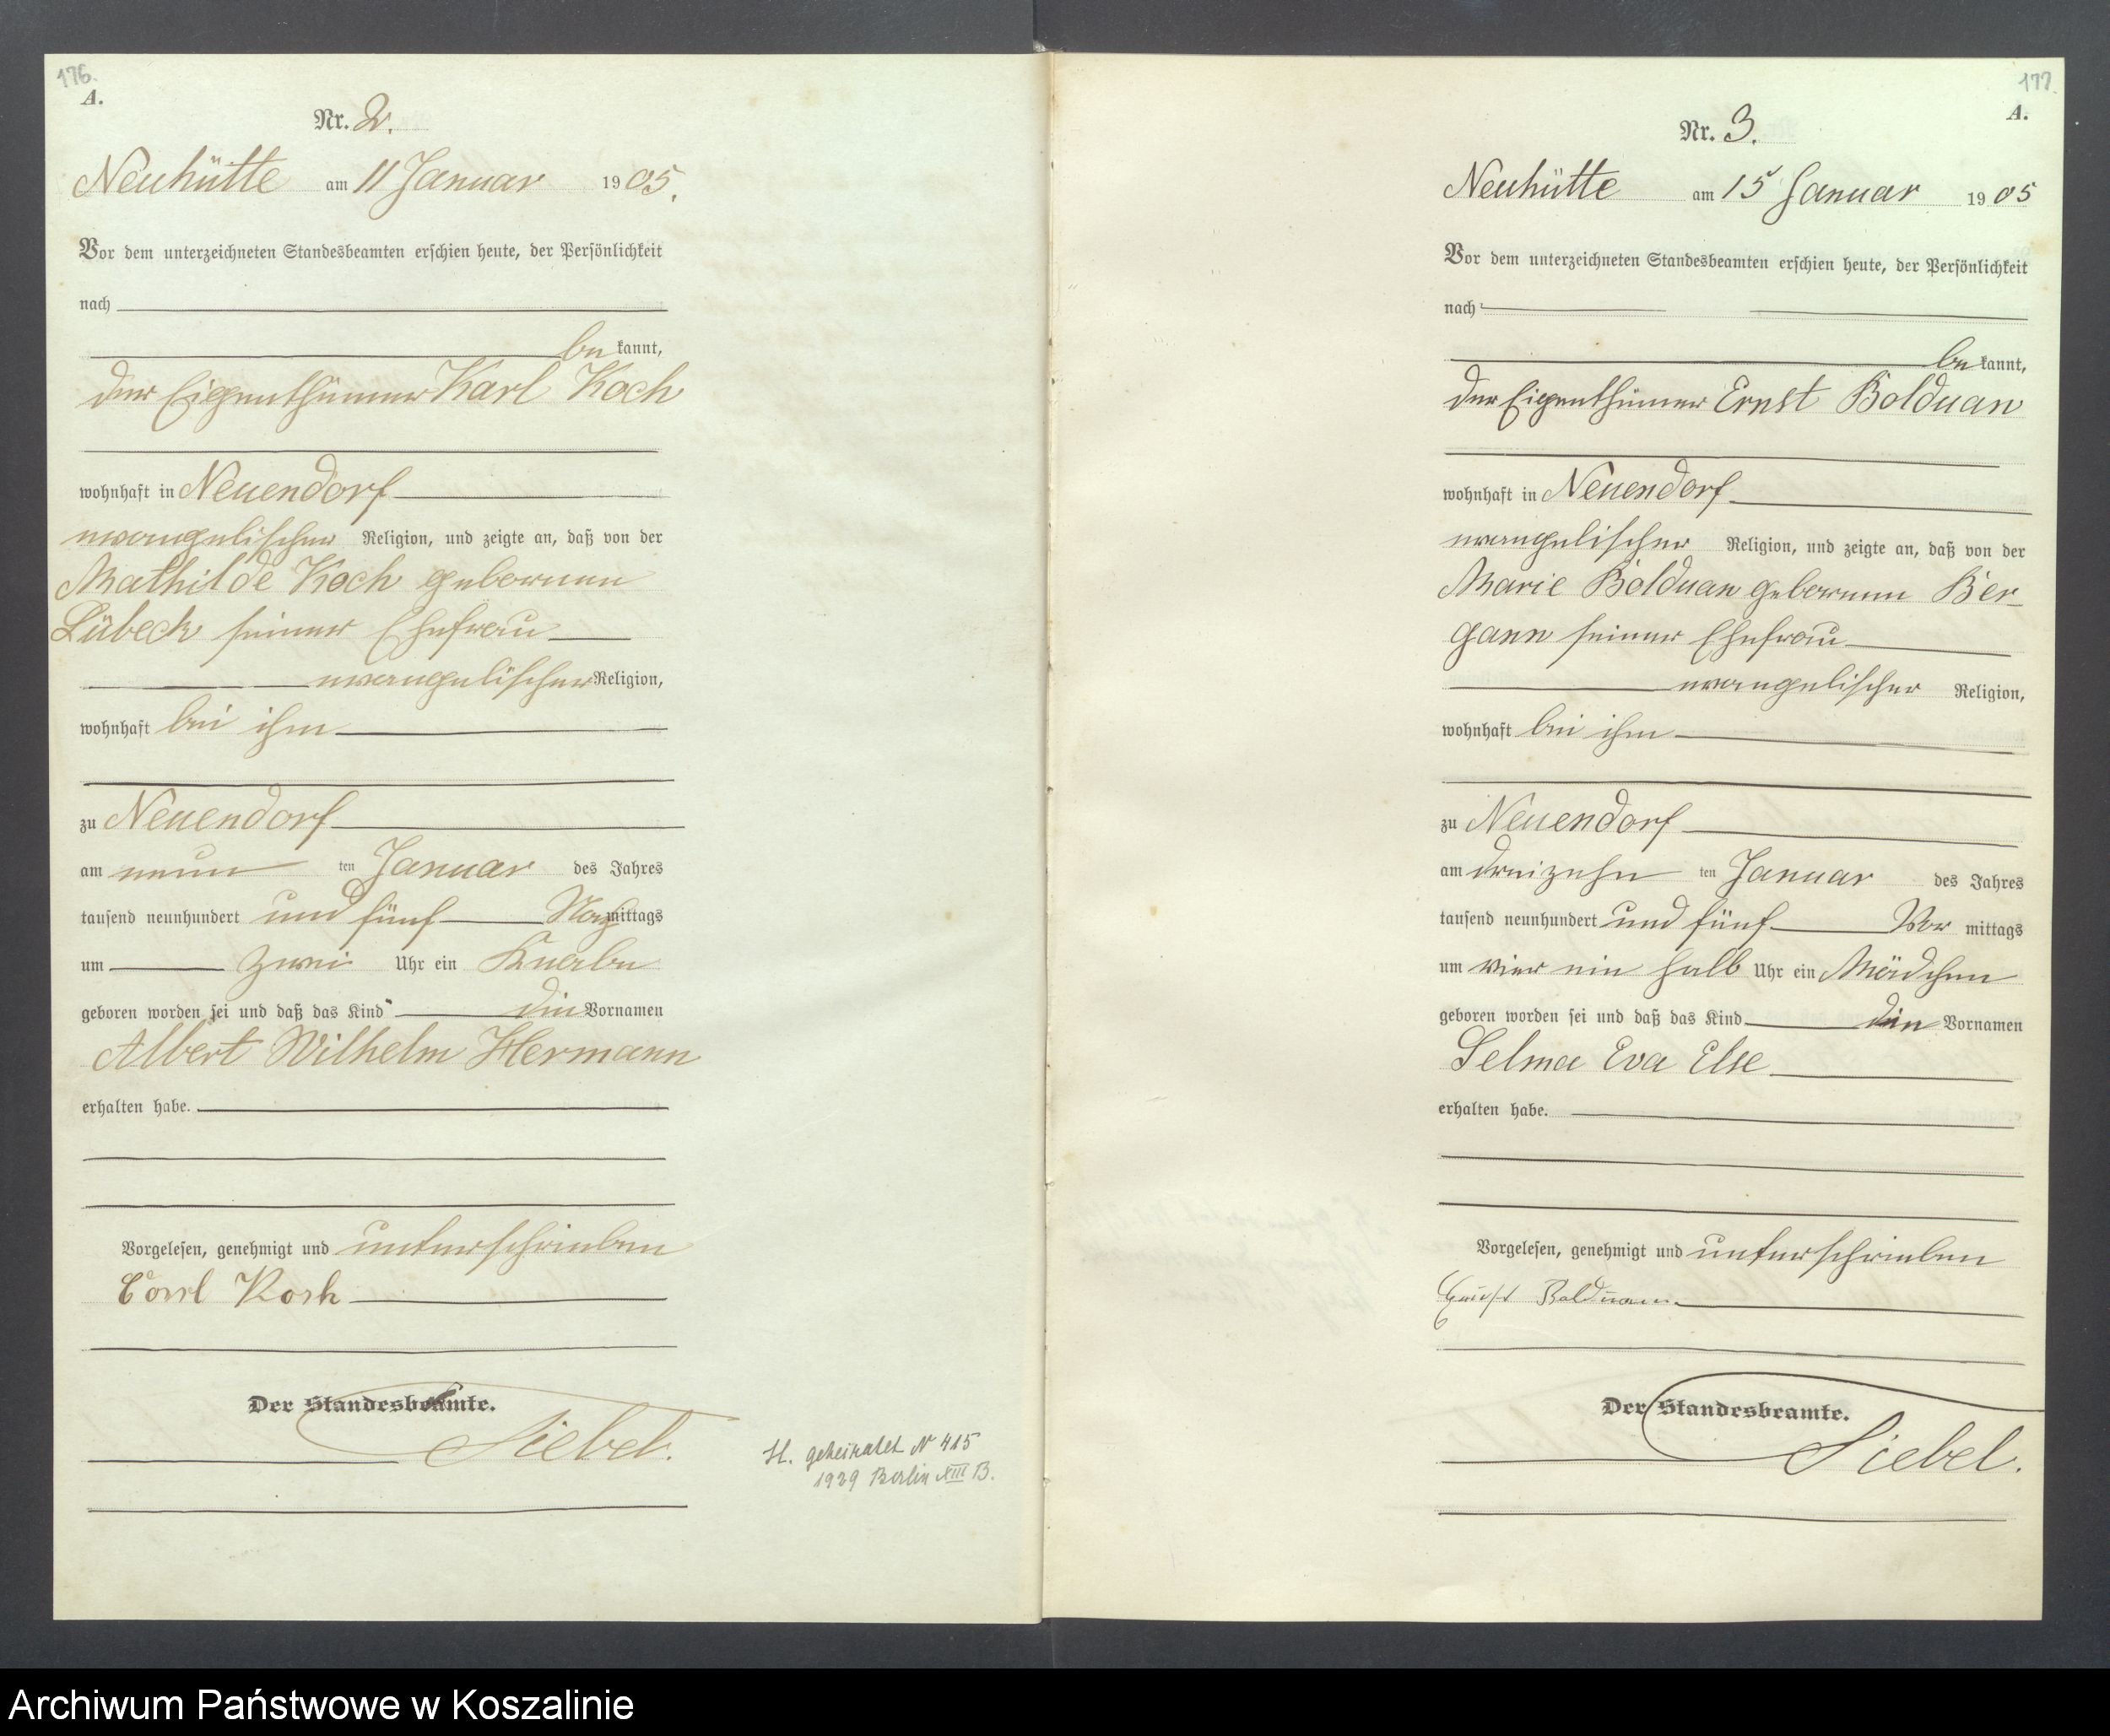 176.
A.
Nr. 2.
Neuhütte am 11 Januar 1905.
Vor dem unterzeichneten Standesbeamten erschien heute, der Persönlichkeit
nach
bekannt,
der Eigenthümer Karl Koch
wohnhaft in Neuendorf
evangelischer Religion, und zeigte an, daß von der
Mathilde Koch geborenen
Lübeck seiner Ehefrau
evangelischer Religion,
wohnhaft bei ihm
zu Neuendorf
am neun ten Januar des Jahres
tausend neunhundert und fünf Nachmittags
um zwei Uhr ein Knabe
geboren worden sei und daß das Kind die Vornamen
Albert Wilhelm Hermann
erhalten habe.
Vorgelesen, genehmigt und unterschrieben
Carl Koch
Der Standesbeamte.
Siebel.
H. geheiratet N 415
1939 Berlin XIII B.
177.
A.
Nr. 3.
Neuhütte am 15 Januar 1905
Vor dem unterzeichneten Standesbeamten erschien heute, der Persönlichkeit
nach
bekannt,
der Eigenthümer Ernst Bolduan
wohnhaft in Neuendorf
evangelischer Religion, und zeigte an, daß von der
Marie Bolduan geborenen Ber-
gann seiner Ehefrau
evangelischer Religion,
wohnhaft bei ihm
zu Neuendorf
am dreizehn ten Januar des Jahres
tausend neunhundert und fünf Vor mittags
um vier ein halb Uhr ein Mädchen
geboren worden sei und daß das Kind die Vornamen
Selma Eva Else
erhalten habe.
Vorgelesen, genehmigt und unterschrieben
Ernst Bolduan
Der Standesbeamte.
Siebel.
Archiwum Państwowe w Koszalinie